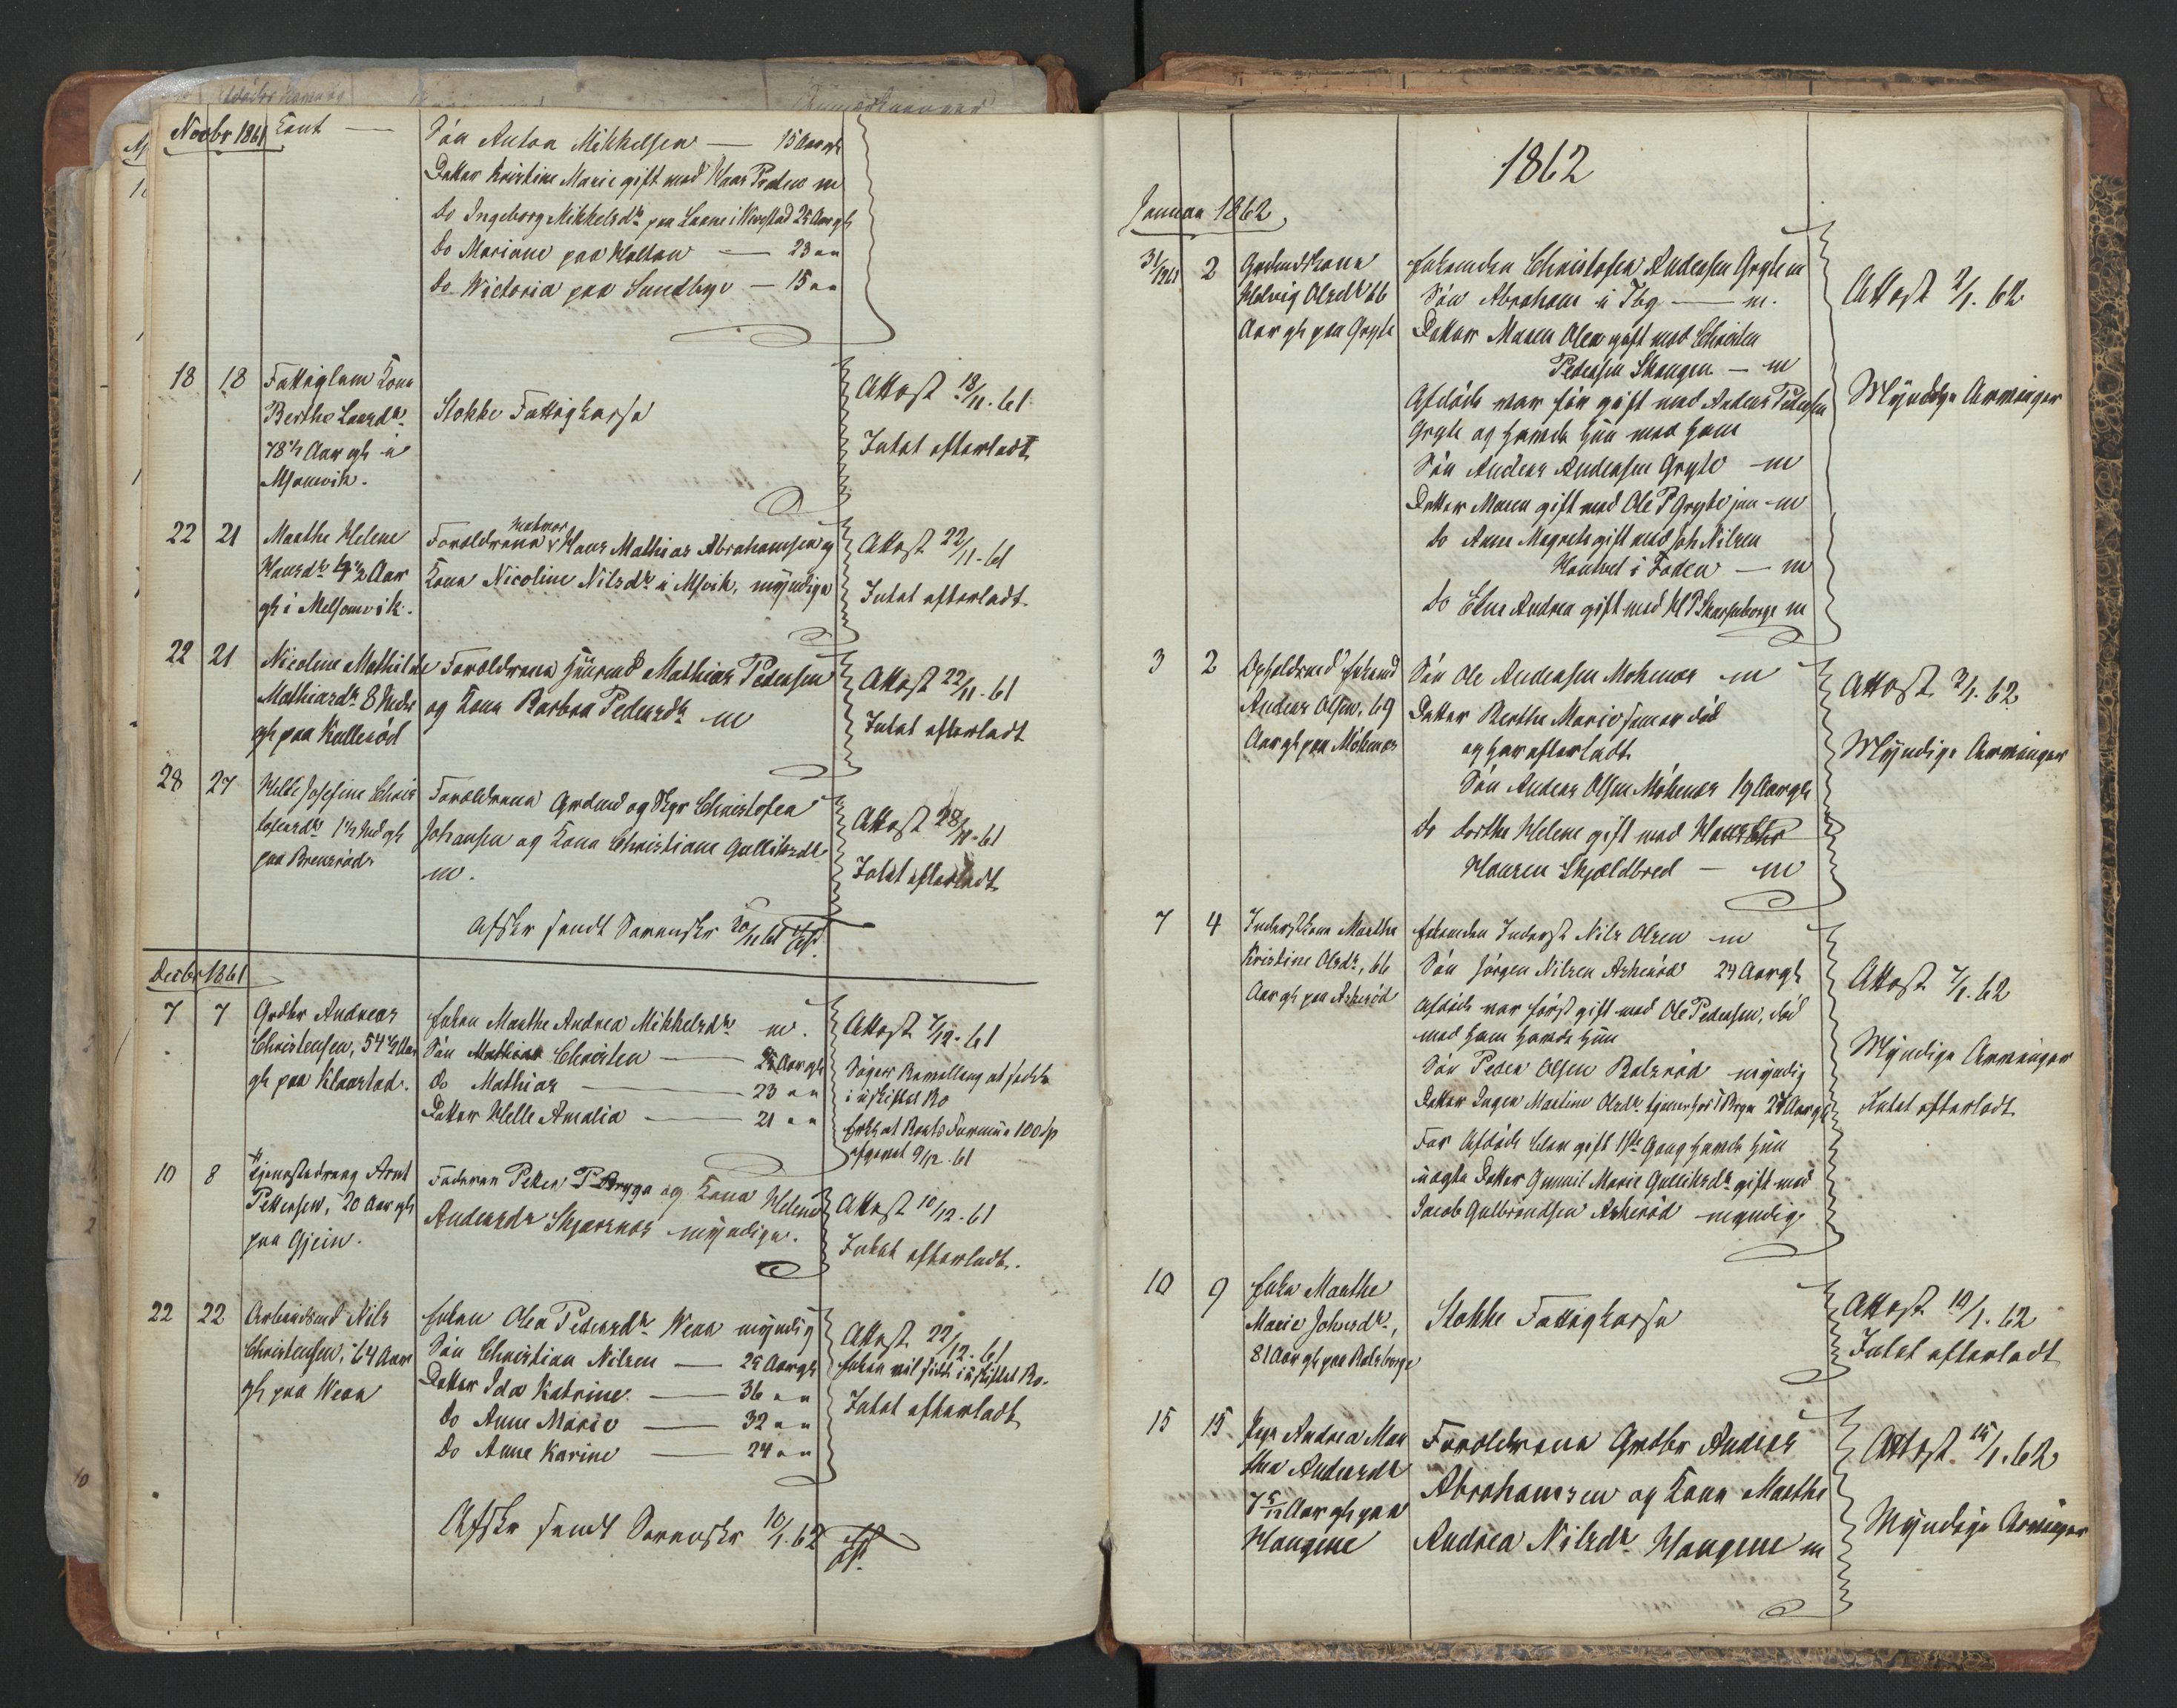 Novbr 1861
Cont —
Søn Anton Mikkelsen — 15 Aar gl
Datter Kristine Marie gift med Hans Preden m
do Ingeborg Mikkelsdr paa Laane i 25 Aar gl
do Mariane paa Holtan — 23 " "
do Wictoria paa Sundbye — 15 " "
18 18 Fattiglem Kone
Berthe Larsdr
78½ Aar gl i
Msomvik.
Stokke Fattigkasse
Attest 18/11. 61
Intet efterladt
22 21 Marthe Helene
Hansdr Aar
gl i Melsomvik.
Forældrene Matros Hans Mathias Abrahamsen og
Kone Nicoline Nilsdr i Msvik, myndige
Attest 22/11-61
Intet efterladt
22 21 Nicoline Mathilde
Mathiasdr 8 Mdr
gl paa Kullerød
Forældrene Huusmd Mathias Pedersen
og Kone Barbra Pedersdr m
Attest 22/11-61
Intet efterladt
28 27 Helle Josefine Chris
tofersdr 1½ Md gl
paa Brensrød.
Forældrene Grdmd og Skpr Christofer
Johansen og Kone Christiane Gulliksdr
m.
Attest 28/11-61
Intet efterladt
Afskr sendt Sorenskr 30/11 61
Decbr 1861
7 7 Grdbr Andreas
Christensen, 54½ Aar
gl paa Klaastad.
Enken Marthe Andrea Mikkelsdr m.
Søn Mathias Christen — 25 Aar gl
do Mathias — 23 " "
Datter Helle Amalia — 21 " "
Attest 7/12-61
Søger Bewilling at sidde
i uskiftet Bo
Enkens at Boets Formue 100 Sp
opgivet 9/12.61
10 8 Tjenestedreng Arnt
Pettersen, 20 Aar gl
paa Gjein.
Faderen Petter P Brygge og Kone Helene
Andersdr Skjærsnæs myndige.
Attest 10/12-61
Intet efterladt.
22 22 Arbeidsmd Nils
Christensen, 64 Aar
gl paa Wear
Enken Olea Pedersdr Wear myndig
Søn Christian Nilsen — 25 Aar gl
Datter Ida Katrine — 36 " "
do Anne Marie — 32 " "
do Anne Karine — 24 " "
Attest 22/12-61
Enken vil sidde i uskiftet Bo.
Intet efterladt
Afskr sendt Sorenskr 10/1.62
1862
Januar 1862
31/12 61 2 Grdmdskone
Helvig Olsdr 66
Aar gl paa Gryte
Enkemden Christofer Andersen Gryte m
Søn Abraham i Tbg — m.
Datter Maren Olea gift med Christen
Pedersen Skaugen — m
Afdøde var før gift med Anders Pedersen
Gryte og havde hun med ham
Søn Anders Andersen Gryte — m
Datter Maren gift med Ole P Gryte jun — m
do Anne Magrete gift med Joh Nilsen
Hautvet i Foden — m
do Elne Andrea gift med H P Skarsenborge m
Attest 2/1. 62
Myndige Arvinger
3 2 Opholdsmd Enkemd
Anders Olsen, 69
Aar gl paa Møkenæs
Søn Ole Andersen Mokenæs m
Datter Berthe Marie som er død
og har efterladt
Søn Anders Olsen Møkenæs 19 Aar gl
do Dorthe Helene gift med Hans Chr
Hansen Skjældbred — m
Attest 3/1. 62
Myndige Arvinger
7 4 Inderstkone Marthe
Kristine Olsdr, 66
Aar gl paa Askerød
Enkemden Inderst Nils Olsen m
Søn Jørgen Nilsen Askerød 24 Aar gl
Afdøde var først gift med Ole Pedersen, død
med ham havde hun
Søn Peder Olsen Balsrød myndig
Datter Inger Martine Olsdr tjener hos 27 Aar gl
Før Afdøde blev gift 1ste Gang havde hun
uægte Datter Gunnil Marie Gulliksdr gift med
Jacob Gulbrandsen Askerød myndig
Attest 7/1. 62
Myndige Arvinger
Intet efterladt
10 9 Enke Marthe
Marie Johnsdr,
81 Aar gl paa Rakborge
Stokke Fattigkasse
Attest 10/1. 62
Intet efterladt
15 15 Pige Andrea Mar
thea Andersdr
7 5/12 Aar gl paa
Haugene
Forældrene Grdbr Anders
Abrahamsen og Kone Marthe
Andrea Nilsdr Haugene m
Attest 15/1. 62
Myndige Arvinger